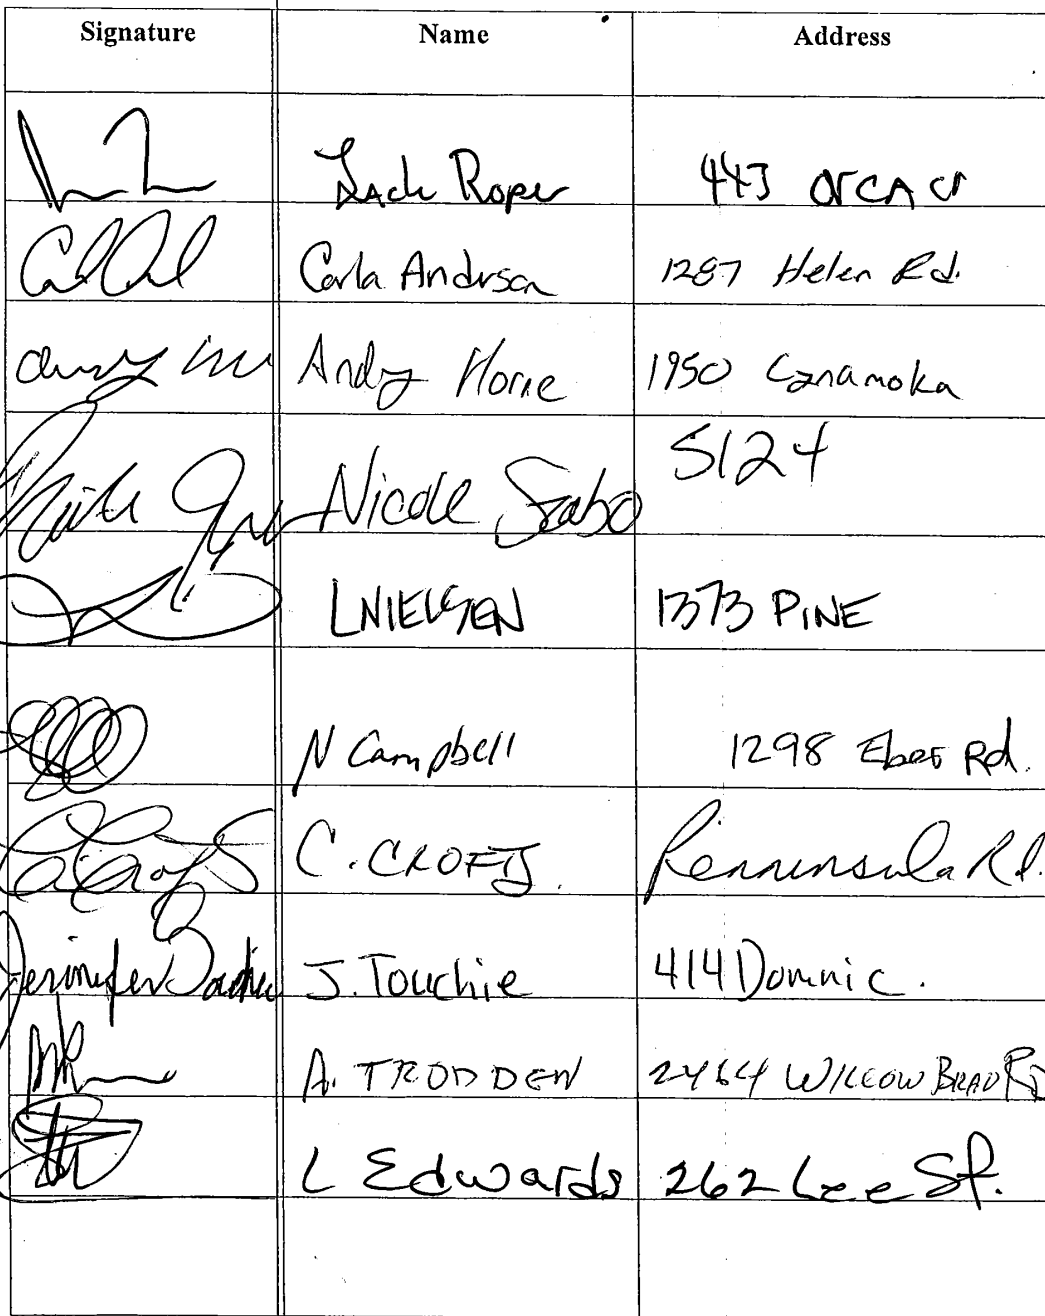 Signature Name Address
Zach Roper 443 Orca Cr
Carla Anderson 1287 Helen Rd.
Andy Horne 1950 Cynamoka
Nicole Szabo 5124
L NIELSEN 1373 PINE
N Campbell 1298 Eber Rd.
C. CROFTS. Penninsula Rd.
Jennifer J. Touchie 414 Dominic.
A. TRODDEN 2464 WILLOW BRAE Rd
L Edwards 262 Lee St.